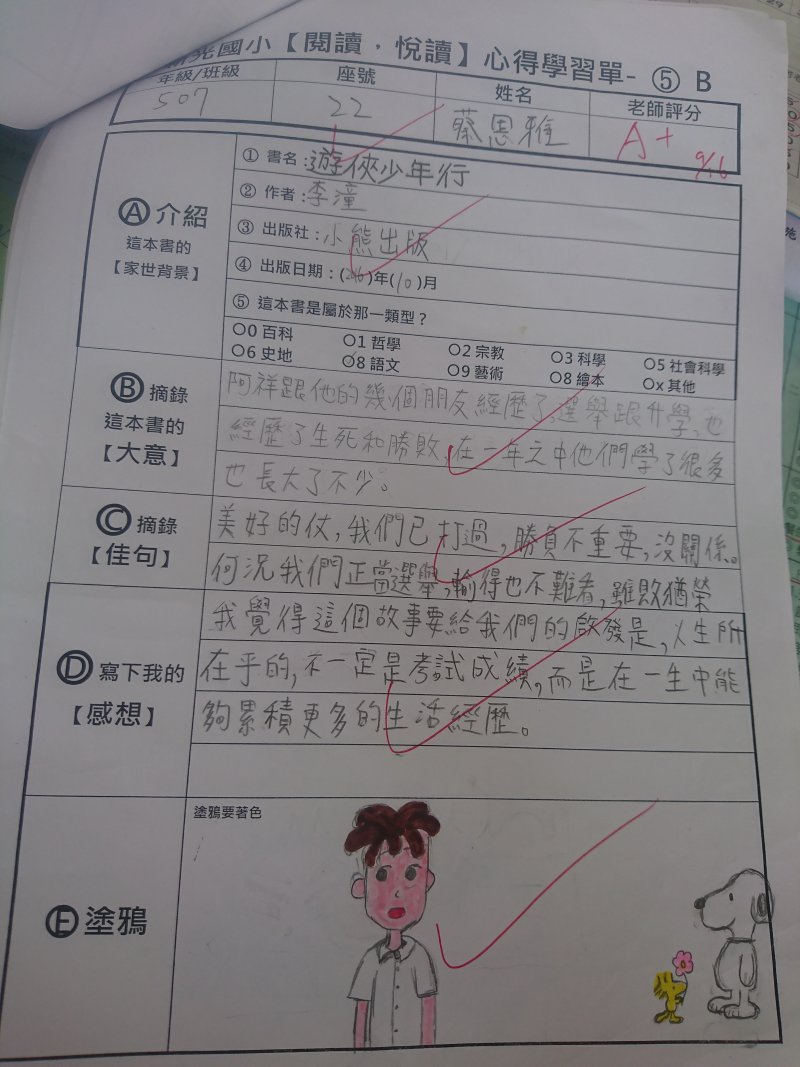 光國小【閱讀，悅讀】心得學習單- ⑤ B
年級/班級 座號 姓名 老師評分
507 22 蔡恩雅 A+ 9/16
Ⓐ 介紹
這本書的
【家世背景】
① 書名：遊俠少年行
② 作者：李潼
③ 出版社：小熊出版
④ 出版日期：( )年(10)月
⑤ 這本書是屬於那一類型？
○0 百科 ○1 哲學 ○2 宗教 ○3 科學 ○5 社會科學
○6 史地 ○8 語文 ○9 藝術 ○8 繪本 ○x 其他
Ⓑ 摘錄
這本書的
【大意】
阿祥跟他的幾個朋友經歷了選舉跟升學，也
經歷了生死和勝敗，在一年之中他們學了很多
也長大了不少。
Ⓒ 摘錄
【佳句】
美好的仗，我們已打過，勝負不重要，沒關係。
何況我們正當選舉，輸得也不難看，雖敗猶榮
Ⓓ 寫下我的
【感想】
我覺得這個故事要給我們的啟發是，人生所
在乎的，不一定是考試成績，而是在一生中能
夠累積更多的生活經歷。
Ⓔ 塗鴉
塗鴉要著色